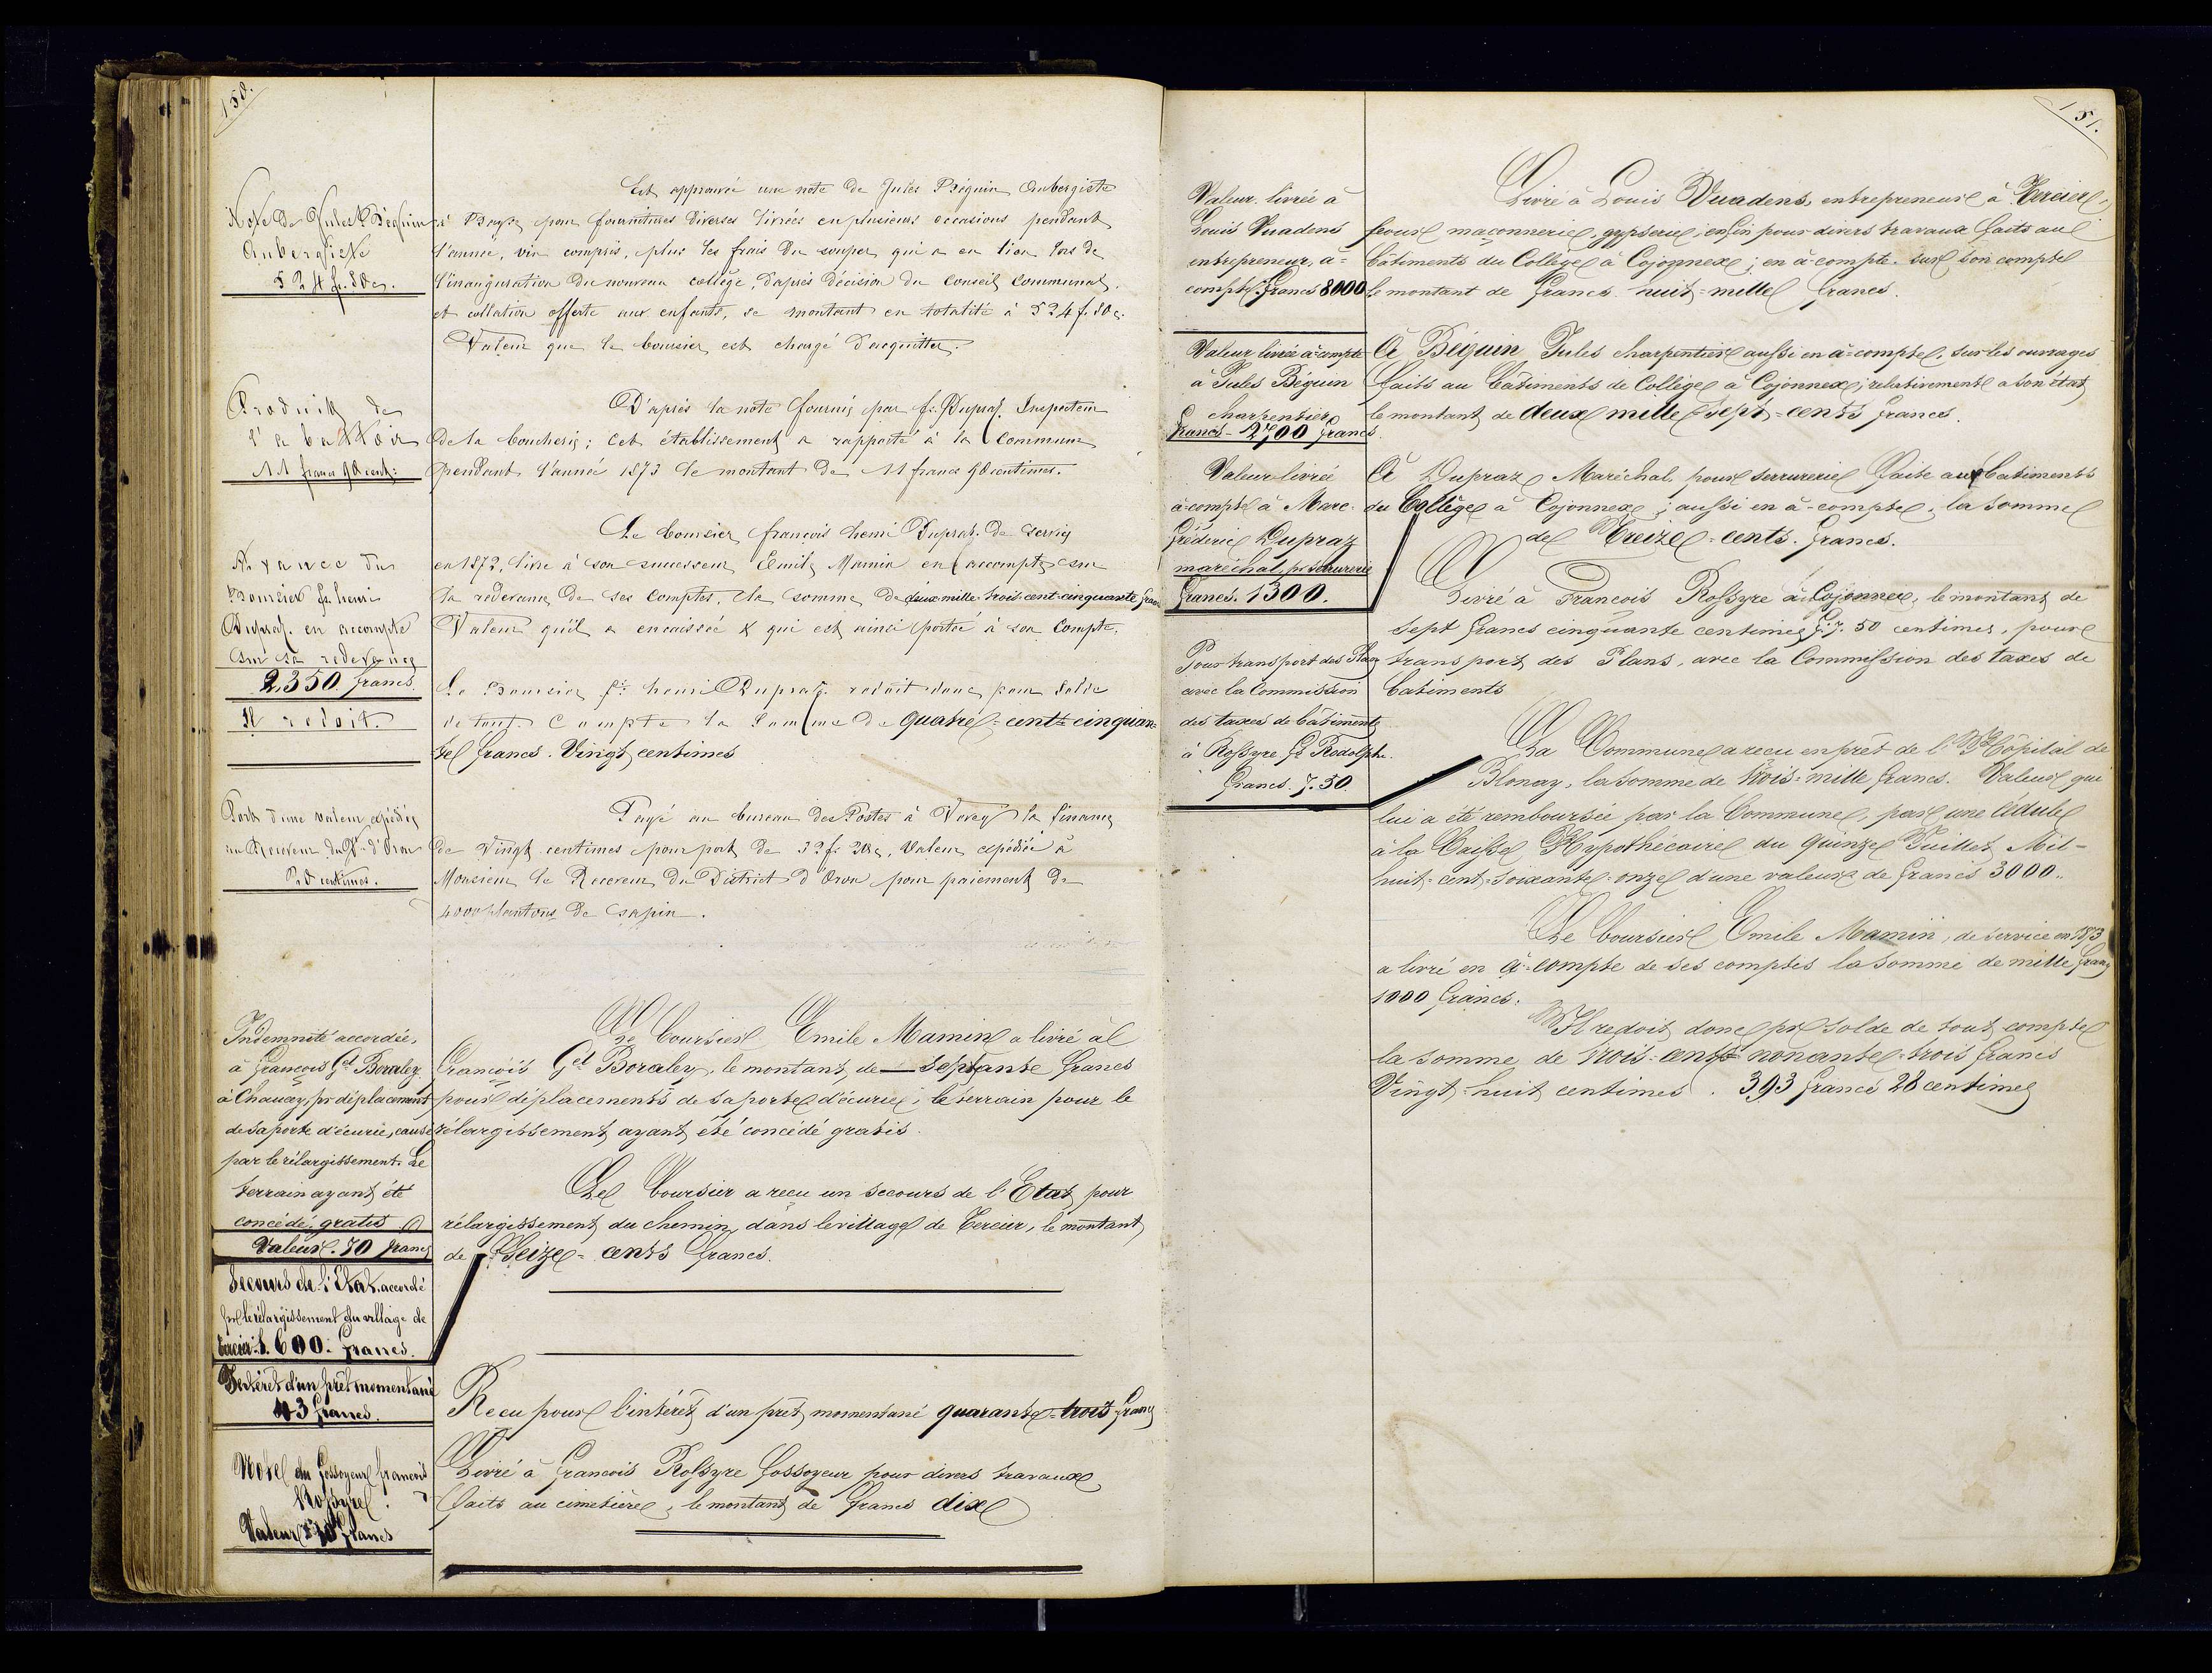 150.
Note de Jules Béguin
Aubergiste
524 fr. 80 c.
Est approuvée une note de Jules Béguin Aubergiste
à pour fournitures diverses livrées en plusieurs occasions pendant
l'année, vin compris, plus les frais du souper qui a eu lieu lors de
l'inauguration du nouveau collège, d'après décision du Conseil Communal,
et collation offerte aux enfants, se montant en totalité à 524 f. 80 c.
Valeur que le boursier est chargé d'acquitter.
Produit de
l'abattoir
11 francs 90 cent:
D'après la note fournie par fs. Dupraz. Inspecteur
de la boucherie; cet établissement a rapporté à la Commune
pendant l'année 1873 le montant de 11 francs 90 centimes.
Avance du
Boursier fs. henri
Dupraz. en accompte
sur sa redevance
2,350 francs
Il redoit.
Le boursier françois henri Dupraz. de service
en 1872, livre à son successeur Emile Mamin en accompte sur
la redevance de ses comptes, la somme de deux mille trois cent cinquante francs
Valeur qu'il a encaissée & qui est ainsi portée à son Compte.
Le Boursier fs. henri Dupraz. redoit donc pour solde
de tout compte la somme de quatre=cent=cinquan=
te francs. Vingt centimes
Port d'une valeur expédiée
au Receveur du Dt. d'Oron
20 centimes.
Payé au bureau des Postes à Vevey la finance
de Vingt centimes pour port de 32 f. 20 c, Valeur expédiée à
Monsieur le Receveur du District d'Oron pour paiement de
4000 plantons de sapin.
Indemnité accordée,
à François Gel Boraley
à Chaucey, pr déplacement
de sa porte d'écurie, causé
par le rélargissement. Le
terrain ayant été
concédé, gratis
Valeur. 70 francs
Le boursier Emile Mamin a livré à
François Gel Boraley, le montant, de — septante francs
pour déplacements de sa porte d'écurie; le terrain pour le
rélargissement ayant été concédé gratis.
Secours de l'Etat accordé
pr le rélargissement du village de
Tercier f. 1.600. francs.
Le boursier a reçu un secours de l'Etat pour
rélargissement du chemin, dans le village de Tercier, le montant
de Seize=cents francs.
Intérêt d'un prêt momentané
43 francs.
Recu pour l'intérêt d'un prêt momentané quarante=trois francs
Note du fossoyeur françois
Rossyre.
Valeur 10 francs
Livré à François Rossyre fossoyeur pour divers travaux
faits au cimetière, le montant de francs dix
151.
Valeur livrée à
Louis Vuadens
entrepreneur, à=
compte francs 8000
Livré à Louis Vuadens, entrepreneur à Tercier,
pour maçonnerie, gypserie, enfin pour divers travaux faits au
bâtiments du Collège à Cojonnex; en à-compte sur son compte
le montant de francs huit=mille francs.
Valeur livrée à compte
à Jules Béguin
charpentier
francs-2700 francs.
A Béguin Jules charpentier aussi en à=compte, sur les ouvrages
faits au bâtiments de Collège à Cojonnex; relativement a son état
le montant de deux mille sept=cents francs.
Valeur livrée
à-compte à Marc-
Fréderic Dupraz
maréchal, pr serrurerie
francs. 1300.
A Dupraz Maréchal, pour serrurerie faite aux batiments
du Collège à Cojonnex; aussi en à-compte, la somme
de Treize=cents. francs.
Pour transport des Plans
avec la Commission
des taxes de bâtiments
à Rossyre fs Rodolphe.
francs. 7.50
Livré à François Rossyre à Cojonnex, le montant de
sept francs cinquante centimes F. 7. 50 centimes, pour
transport des Plans, avec la Commission des taxes de
batiments
La Commune a recu en prêt de l'Hôpital de
Blonay, la somme de trois=mille francs. Valeur qui
lui a été remboursée par la Commune, par une cédule
à la Caisse Hypothécaire du quinze Juillet Mil-
huit=cent=soixante=onze d'une valeur de francs 3000..
Le boursier Emile Mamin, de service en 1873
a livré en à=compte de ses comptes la somme de mille francs
1000 francs.
Il redoit, donc pr solde de tout compte
la somme de trois-cent nonante=trois francs
Vingt=huit centimes. 393 francs 28 centimes